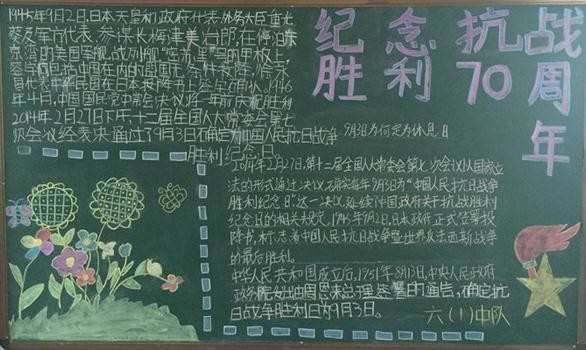 纪念抗战
胜利70周年
1945年9月2日,日本天皇和政府代表、外务大臣重光
葵及军方代表、参谋长梅津美治郎,在停泊东
京湾的美国军舰、战列舰"密苏里"号的甲板上,
签
日本
年4月,中国国民党中常会决议将
2014年2月27日下午,十二届全国人大常委会第七
次会议经表决通过了9月3日确定为中国人民抗日战争
胜利纪念日
9月3日为何定为休息日
2014年2月27日,第十二届全国人大常委会第七次会议以国家立
法的形式通过决议,确定每年9月3日为"中国人民抗日战争
胜利纪念日"这一决议,延续了中国政府关于抗战胜利
纪念日的相关规定,1945年9月2日,日本政府正式签署投
降书,标志着中国人民抗日战争暨世界反法西斯战争
的最后胜利。
中华人民共和国成立后,1951年8月13日,中央人民政府
政务院发出由周恩来总理签署的通告,确定抗
日战争胜利日为9月3日。
六(1)中队